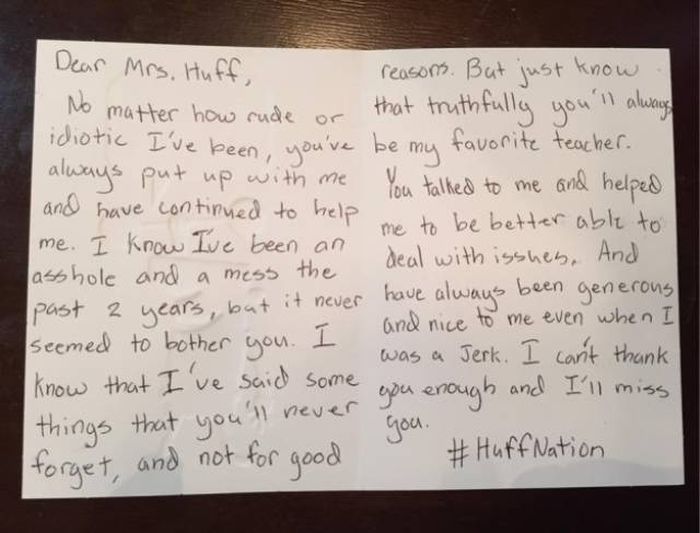 Dear Mrs. Huff,
No matter how rude or
idiotic I've been, you've
always put up with me
and have continued to help
me. I know I've been an
asshole and a mess the
past 2 years, but it never
seemed to bother you. I
know that I've said some
things that you'll never
forget, and not for good
reasons. But just know
that truthfully you'll always
be my favorite teacher.
You talked to me and helped
me to be better able to
deal with isshes. And
have always been generous
and nice to me even when I
was a Jerk. I can't thank
you enough and I'll miss
you.
#HuffNation